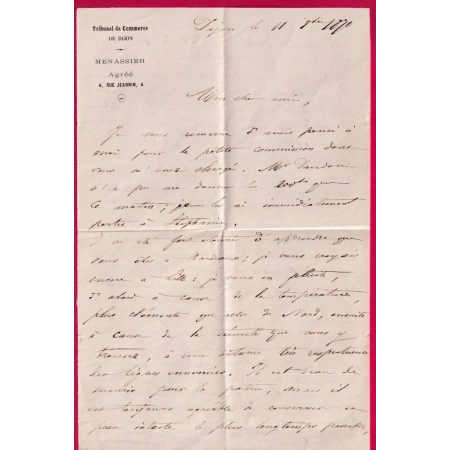 Tribunal de Commerce
DE DIJON
MENASSIER
Agréé
4, RUE JEANNIN, 4
Dijon le 11 9bre 1870
Mon cher ami,
Je vous remercie d'avoir pensé à
moi pour la petite commission dont
vous m'avez chargé. Mr
n'a pu me donner les que
ce matin; je les ai immédiatement
portés à
J'ai été fort étonné d'apprendre que
vous êtes à Bordeaux; je vous croyais
encore à Lille: je vous en félicite,
d'abord à cause de la température,
plus clémente que celle du Nord, ensuite
à cause de la sécurité que vous y
trouvez, à une distance très respectueuse
des lignes ennemies. Il est beau de
mourir pour la patrie, mais il
est toujours agréable de conserver sa
peau intacte le plus longtemps possible,